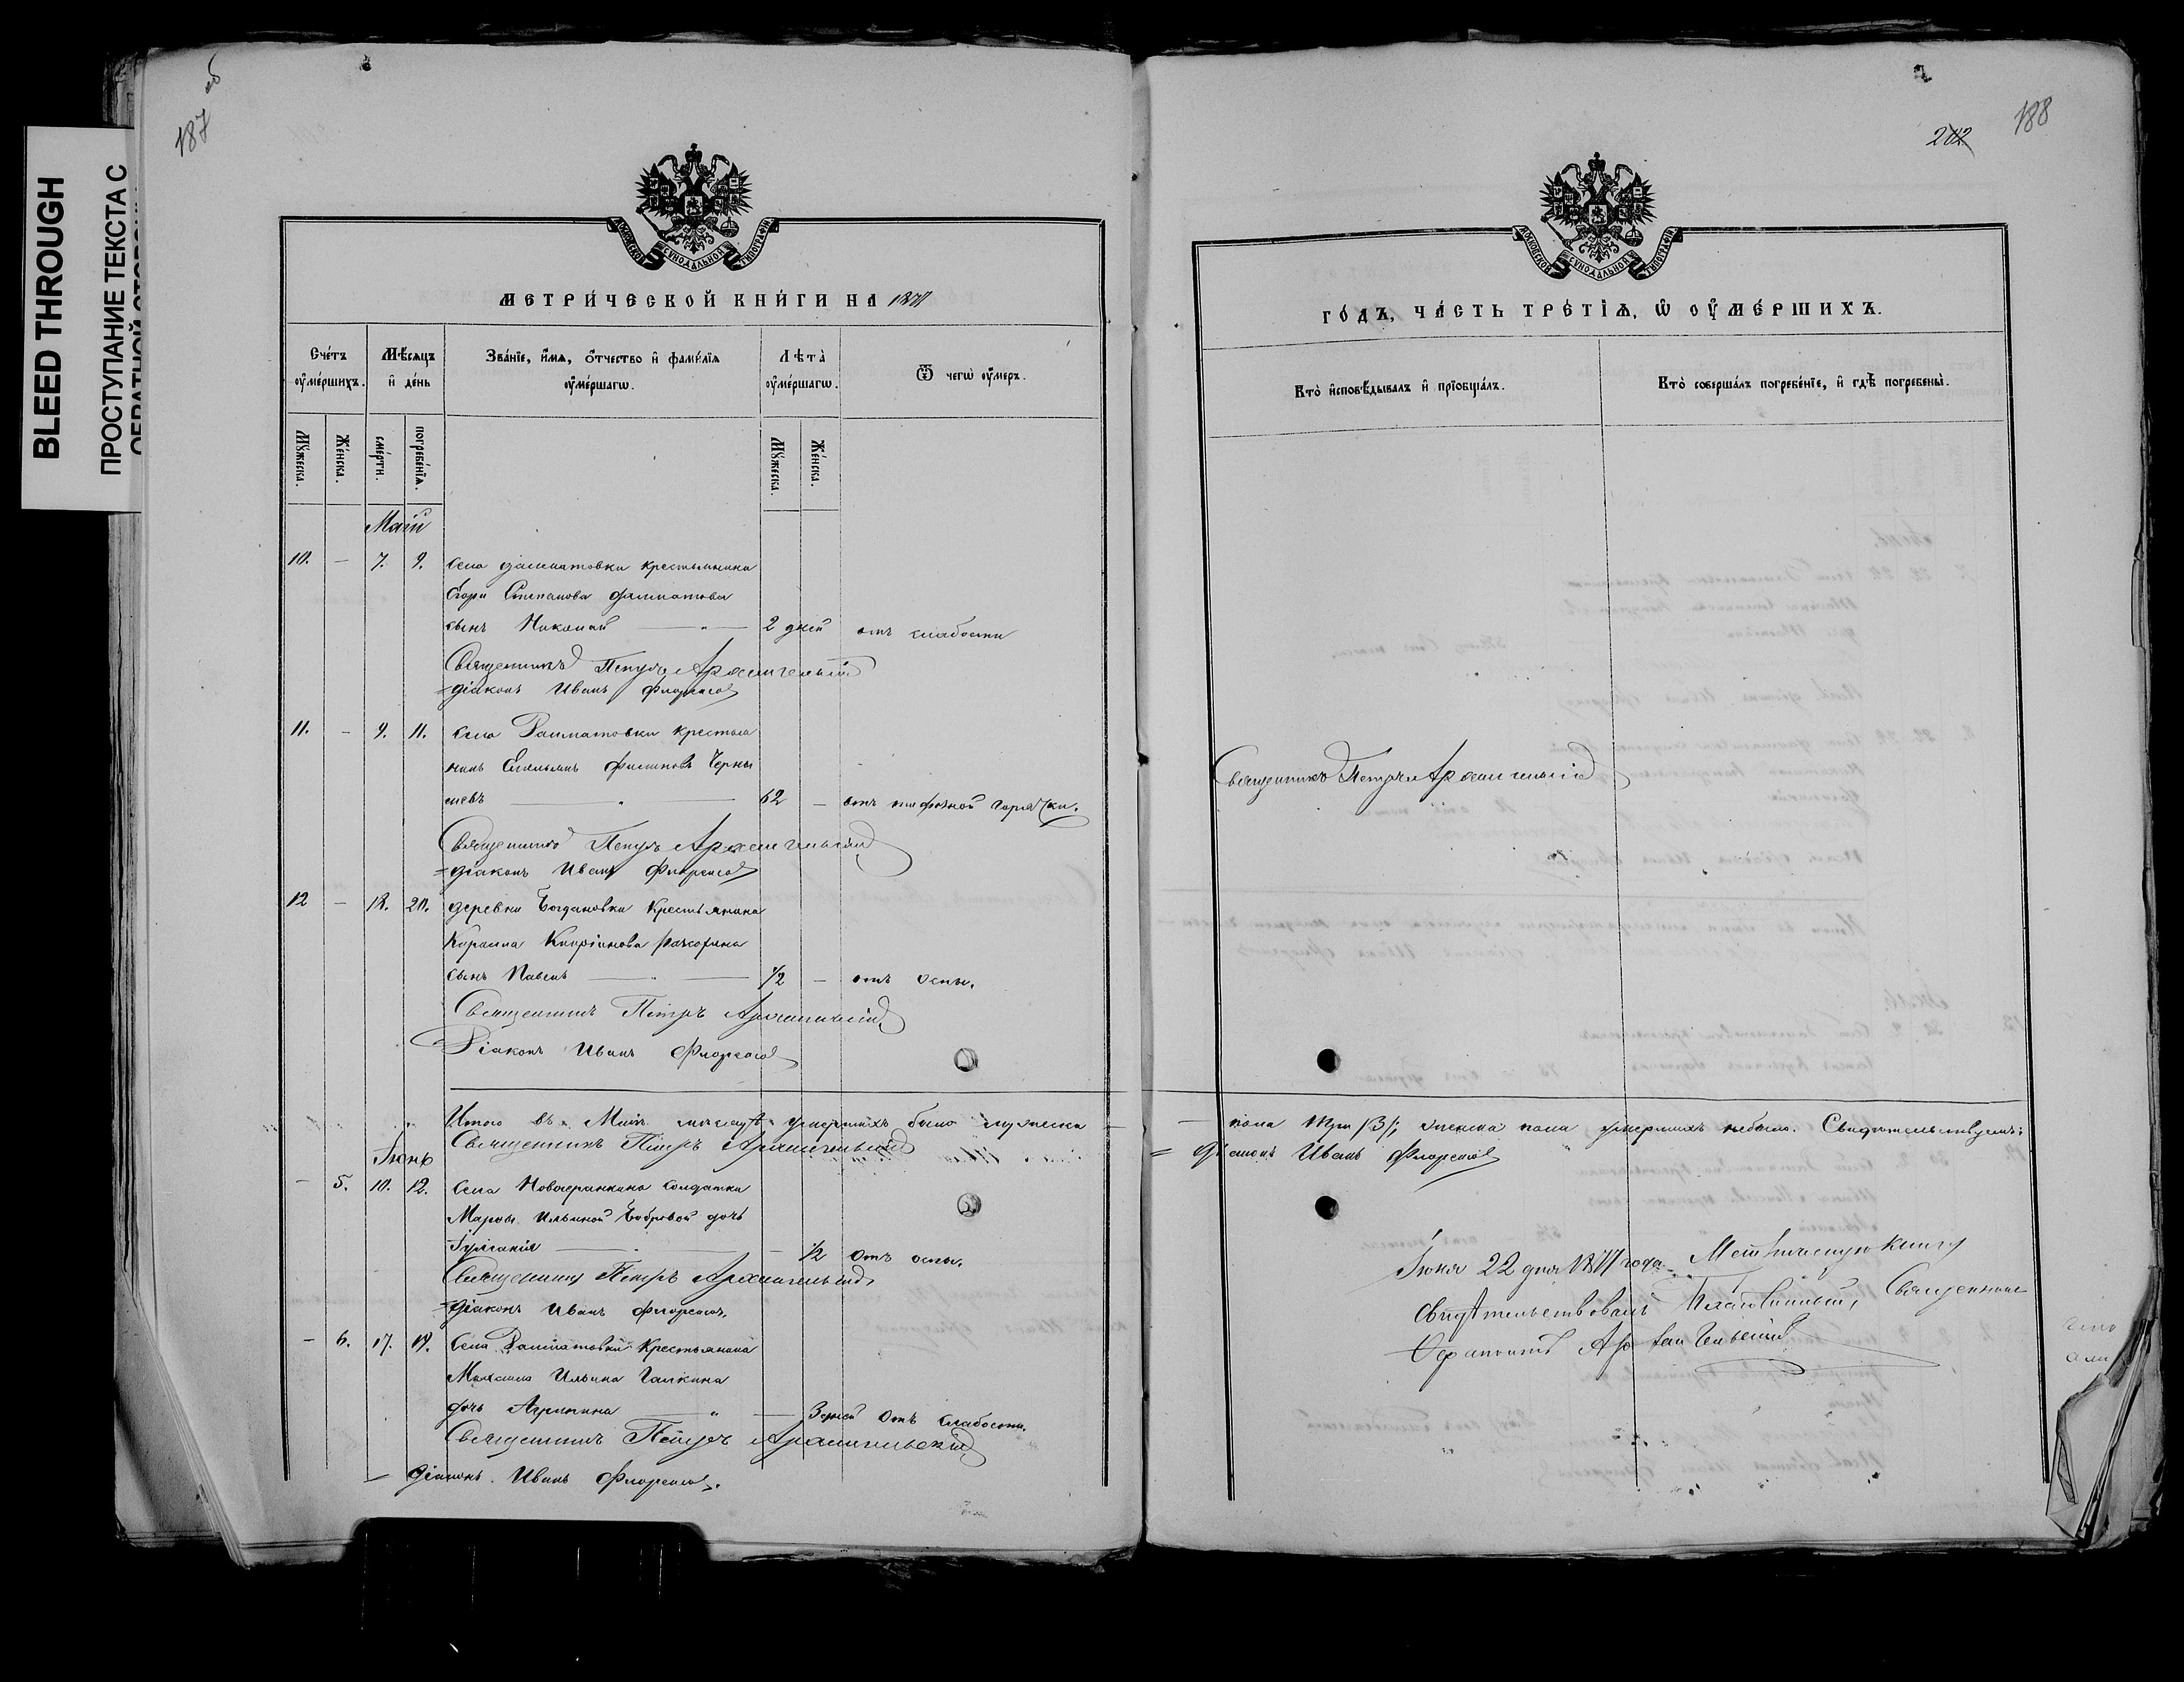 BLEED THROUGH
ПРОСТУПАНИЕ ТЕКСТА С
187 об
188
202
МОСКОВСКОЙ СѴНОДАЛЬНОЙ ТИПОГРАФІИ
МЕТРИ́ЧЕСКОЙ КНИ́ГИ НА 1877
Сче́тъ ᲂу҆ме́ршихъ.
Мѣ́сяцъ и҆ де́нь
Зва́нїе, и҆́мѧ, ѻ҆́тчество и҆ фамѝлїѧ ᲂу҆ме́ршагѡ.
Лѣта̀ ᲂу҆ме́ршагѡ.
Ѿ чегѡ̀ ᲂу҆́меръ.
Мꙋ́жеска.
Же́нска.
сме́рти.
погребе́нїѧ.
Мꙋ́жеска.
Же́нска.
Май
10. — 7. 9. Села Далматовки крестьянина
Егора Степанова Далматова
сынъ Николай — 2 дней отъ слабости
Священникъ Петръ Архангельскій
Діаконъ Иванъ Флоренсовъ
11. — 9. 11. Села Далматовки крестья
нинъ Емельянъ Филиповъ Черны
шевъ — 62 — отъ тифозной горячки.
Священникъ Петръ Архангельскій
Діаконъ Иванъ Флоренсовъ
12 — 18. 20. деревни Богдановки Крестьянина
сынъ Павелъ — 1/2 — отъ оспы.
Священникъ Петръ Архангельскій
Діаконъ Иванъ Флоренсовъ
Итого въ Маѣ мѣсяцѣ умершихъ было мужеска —
Священникъ Петръ Архангельскій
Іюнь
— 5. 10. 12. Села солдатки
Марѳы Ильиной Бобровой дочь
— 1/2 отъ оспы.
Священникъ Петръ Архангельскій
Діаконъ Иванъ Флоренсовъ.
— 6. 17. 19. Села Далматовки Крестьянина
Ильина Галкина
дочь Агрипина — 3 дней отъ слабости.
Священникъ Петръ Архангельскій
— Діаконъ Иванъ Флоренсовъ.
ГО́ДЪ, ЧА́СТЬ ТРЕ́ТЇѦ, Ѡ҆ ОУ҆МЕ́РШИХЪ.
Кто̀ и҆сповѣ́дывалъ и҆ прїѡбща́лъ.
Кто̀ соверша́лъ погребе́нїе, и҆ гдѣ̀ погребены̀.
Священникъ Петръ Архангельскій
— пола три /3/; женска пола умершихъ небыло. Свидѣтельствуемъ:
= Діаконъ Иванъ Флоренсовъ
Іюня 22 дня 1877 года Метрическую книгу
свидѣтельствовалъ Благочинный, Священникъ
Архангельскій